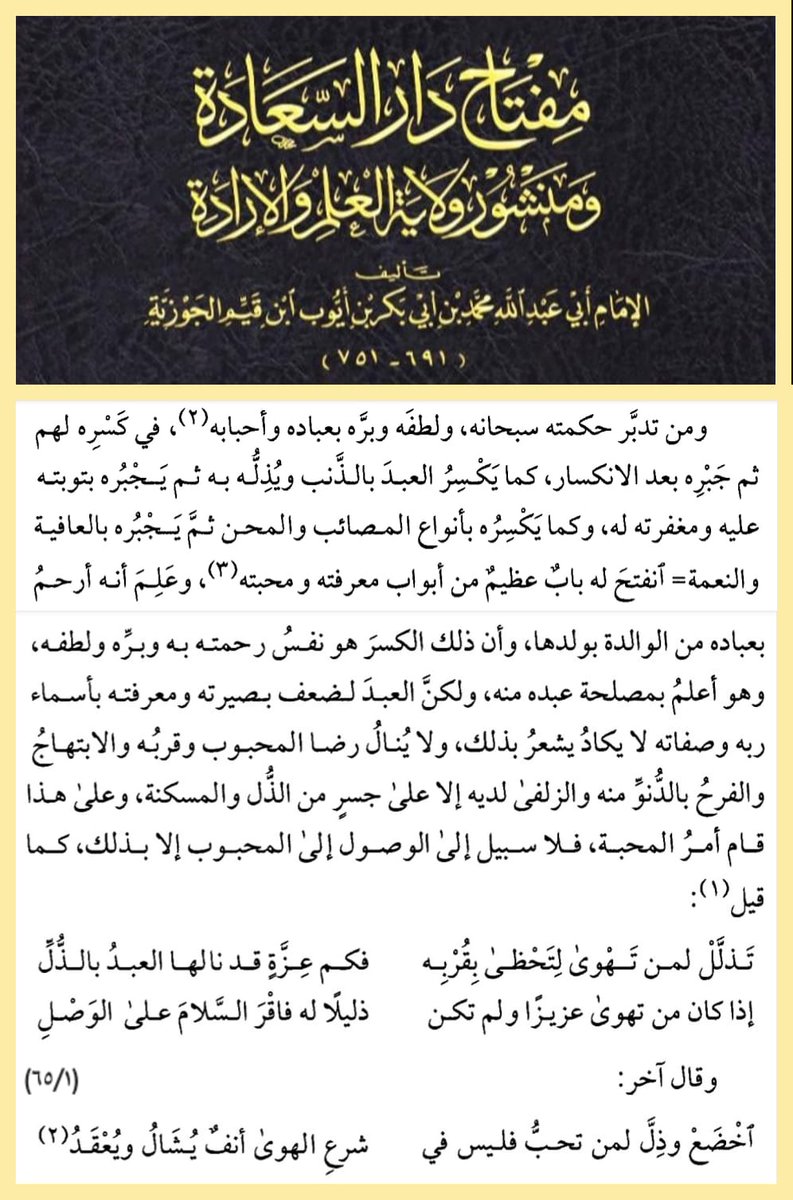 مِفْتَاح دَار السَّعَادَة
وَمَنْشُورُ وِلَايَةِ الْعِلْمِ وَالْإِرَادَة
تأليف
الإِمَامِ أَبِي عَبْدِ اللَّهِ مُحَمَّدِ بْنِ أَبِي بَكْرِ بْنِ أَيُّوب ابْنِ قَيِّمِ الْجَوْزِيَّةِ
(٦٩١ - ٧٥١)
ومن تدبَّر حكمته سبحانه، ولطفَه وبرَّه بعباده وأحبابه(٢)، في كَسْرِه لهم
ثم جَبْرِه بعد الانكسار، كما يَكْسِرُ العبدَ بالذَّنب ويُذِلُّه به ثم يَجْبُره بتوبته
عليه ومغفرته له، وكما يَكْسِرُه بأنواع المصائب والمحن ثمَّ يَجْبُره بالعافية
والنعمة= ٱنفتحَ له بابٌ عظيمٌ من أبواب معرفته ومحبته(٣)، وعَلِمَ أنه أرحمُ
بعباده من الوالدة بولدها، وأن ذلك الكسرَ هو نفسُ رحمته به وبرِّه ولطفه،
وهو أعلمُ بمصلحة عبده منه، ولكنَّ العبدَ لضعف بصيرته ومعرفته بأسماء
ربه وصفاته لا يكادُ يشعرُ بذلك، ولا يُنالُ رضا المحبوب وقربُه والابتهاجُ
والفرحُ بالدُّنوِّ منه والزلفىٰ لديه إلا علىٰ جسرٍ من الذُّل والمسكنة، وعلىٰ هذا
قام أمرُ المحبة، فلا سبيل إلىٰ الوصول إلىٰ المحبوب إلا بذلك، كما
قيل(١):
تَذلَّلْ لمن تَهْوىٰ لِتَحْظىٰ بِقُرْبِه فكم عِزَّةٍ قد نالها العبدُ بالذُّلِّ
إذا كان من تهوىٰ عزيزًا ولم تكن ذليلًا له فاقْرَ السَّلامَ علىٰ الوَصْلِ
وقال آخر: (٦٥/١)
ٱخْضَعْ وذِلَّ لمن تحبُّ فليس في شرعِ الهوىٰ أنفٌ يُشَالُ ويُعْقَدُ(٢)